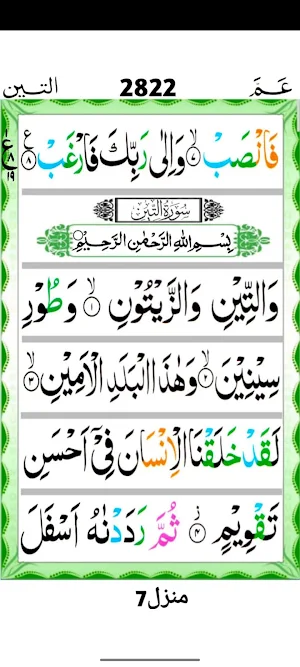 عَمَّ 2822 التين
فَانۡصَبۡ ۙ‏﴿۷﴾ وَاِلٰى رَبِّكَ فَارۡغَبۡ ﴿۸﴾
ع ۸ ۱۹
سُوۡرَةُ التِّيۡنِ
بِسۡمِ اللهِ الرَّحۡمٰنِ الرَّحِيۡمِ
وَالتِّيۡنِ وَالزَّيۡتُوۡنِ ۙ‏﴿۱﴾ وَطُوۡرِ
سِيۡنِيۡنَ ۙ‏﴿۲﴾ وَهٰذَا الۡبَلَدِ الۡاَمِيۡنِ ۙ‏﴿۳﴾
لَقَدۡ خَلَقۡنَا الۡاِنۡسَانَ فِىۡۤ اَحۡسَنِ
تَقۡوِيۡمٍ ۫‏﴿۴﴾ ثُمَّ رَدَدۡنٰهُ اَسۡفَلَ
منزل7